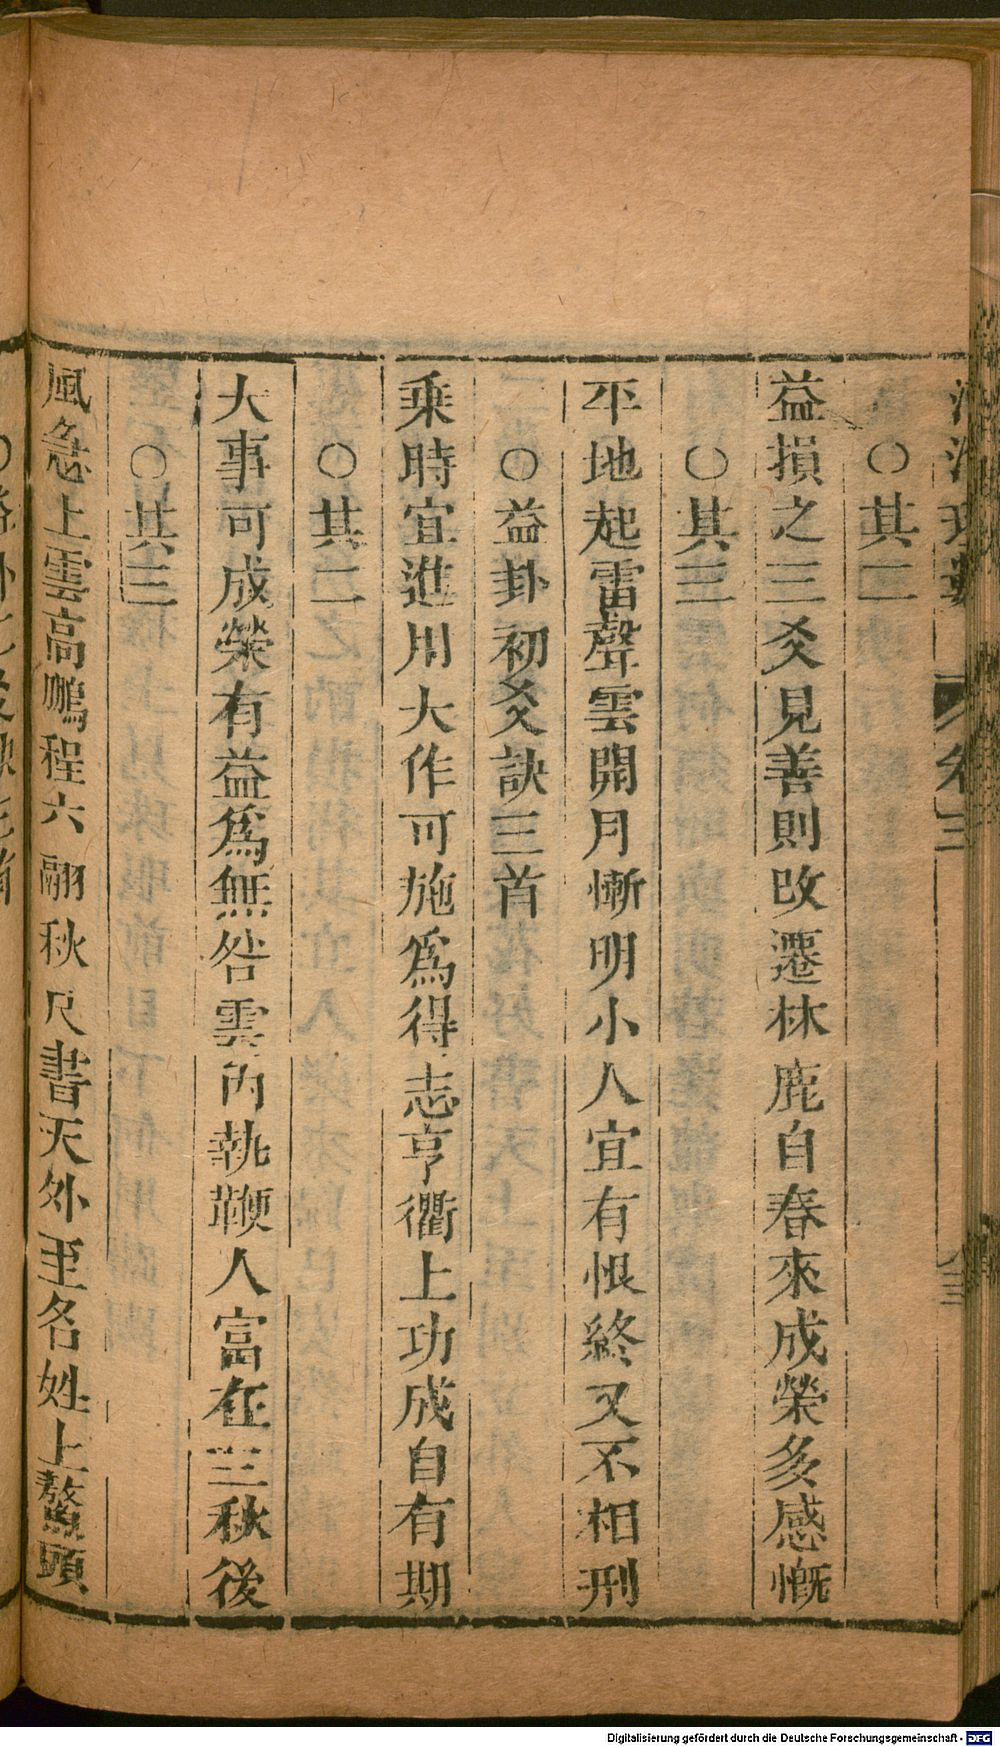 卷三
○其二
益損之三爻見善則改遷林鹿自春來成榮多感慨
○其三
平地起雷聲雲開月慚明小人宜有恨終又不相刑
○益卦初爻訣三首
乘時宜進用大作可施爲得志亨衢上功成自有期
○其二
大事可成榮有益爲無咎雲內執鞭人富在三秋後
○其三
風急上雲高鵬程六翮秋尺書天外至名姓上鰲頭
Digitalisierung gefördert durch die Deutsche Forschungsgemeinschaft - DFG